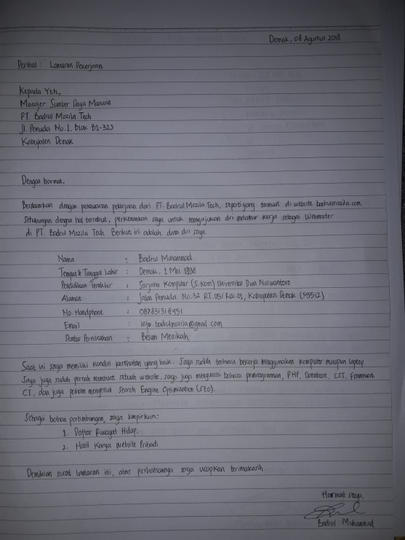 Demak, 08 Agustus 2018
Perihal : Lamaran Pekerjaan
Kepada Yth,
Manajer Sumber Daya Manusia
PT. Badrul Mozila Tech
Jl. Pemuda No. 1. Blok B2-323
Kabupaten Demak
Dengan hormat,
Berdasarkan dengan penawaran pekerjaan dari PT. Badrul Mozila Tech, seperti yang termuat di website badrulmozila.com
Sehubungan dengan hal tersebut, perkenankan saya untuk mengajukan diri melamar kerja sebagai Webmaster
di PT. Badrul Mozila Tech. Berikut ini adalah data diri saya.
Nama : Badrul Muhammad
Tempat & Tanggal Lahir : Demak, 1 Mei
Pendidikan Terakhir : Sarjana Komputer (S.Kom) Universitas Dian Nuswantoro
Alamat : Jalan Pemuda No. 32 RT.05/RW.05, Kabupaten Demak (59512)
No. Handphone :
Email :
Status Pernikahan : Belum Menikah
Saat ini saya memiliki kondisi kesehatan yang baik. Saya sudah terbiasa bekerja menggunakan komputer maupun laptop.
Saya juga sudah pernah membuat sebuah website, saya juga menguasai bahasa pemrograman, PHP, Database, CSS, Framework
CI, dan juga paham mengenai Search Engine Optimization (SEO).
Sebagai bahan pertimbangan, saya lampirkan :
1. Daftar Riwayat Hidup
2. Hasil Karya Website Pribadi
Demikian surat lamaran ini, atas perhatiannya saya ucapkan terimakasih.
Hormat saya,
Badrul Muhammad